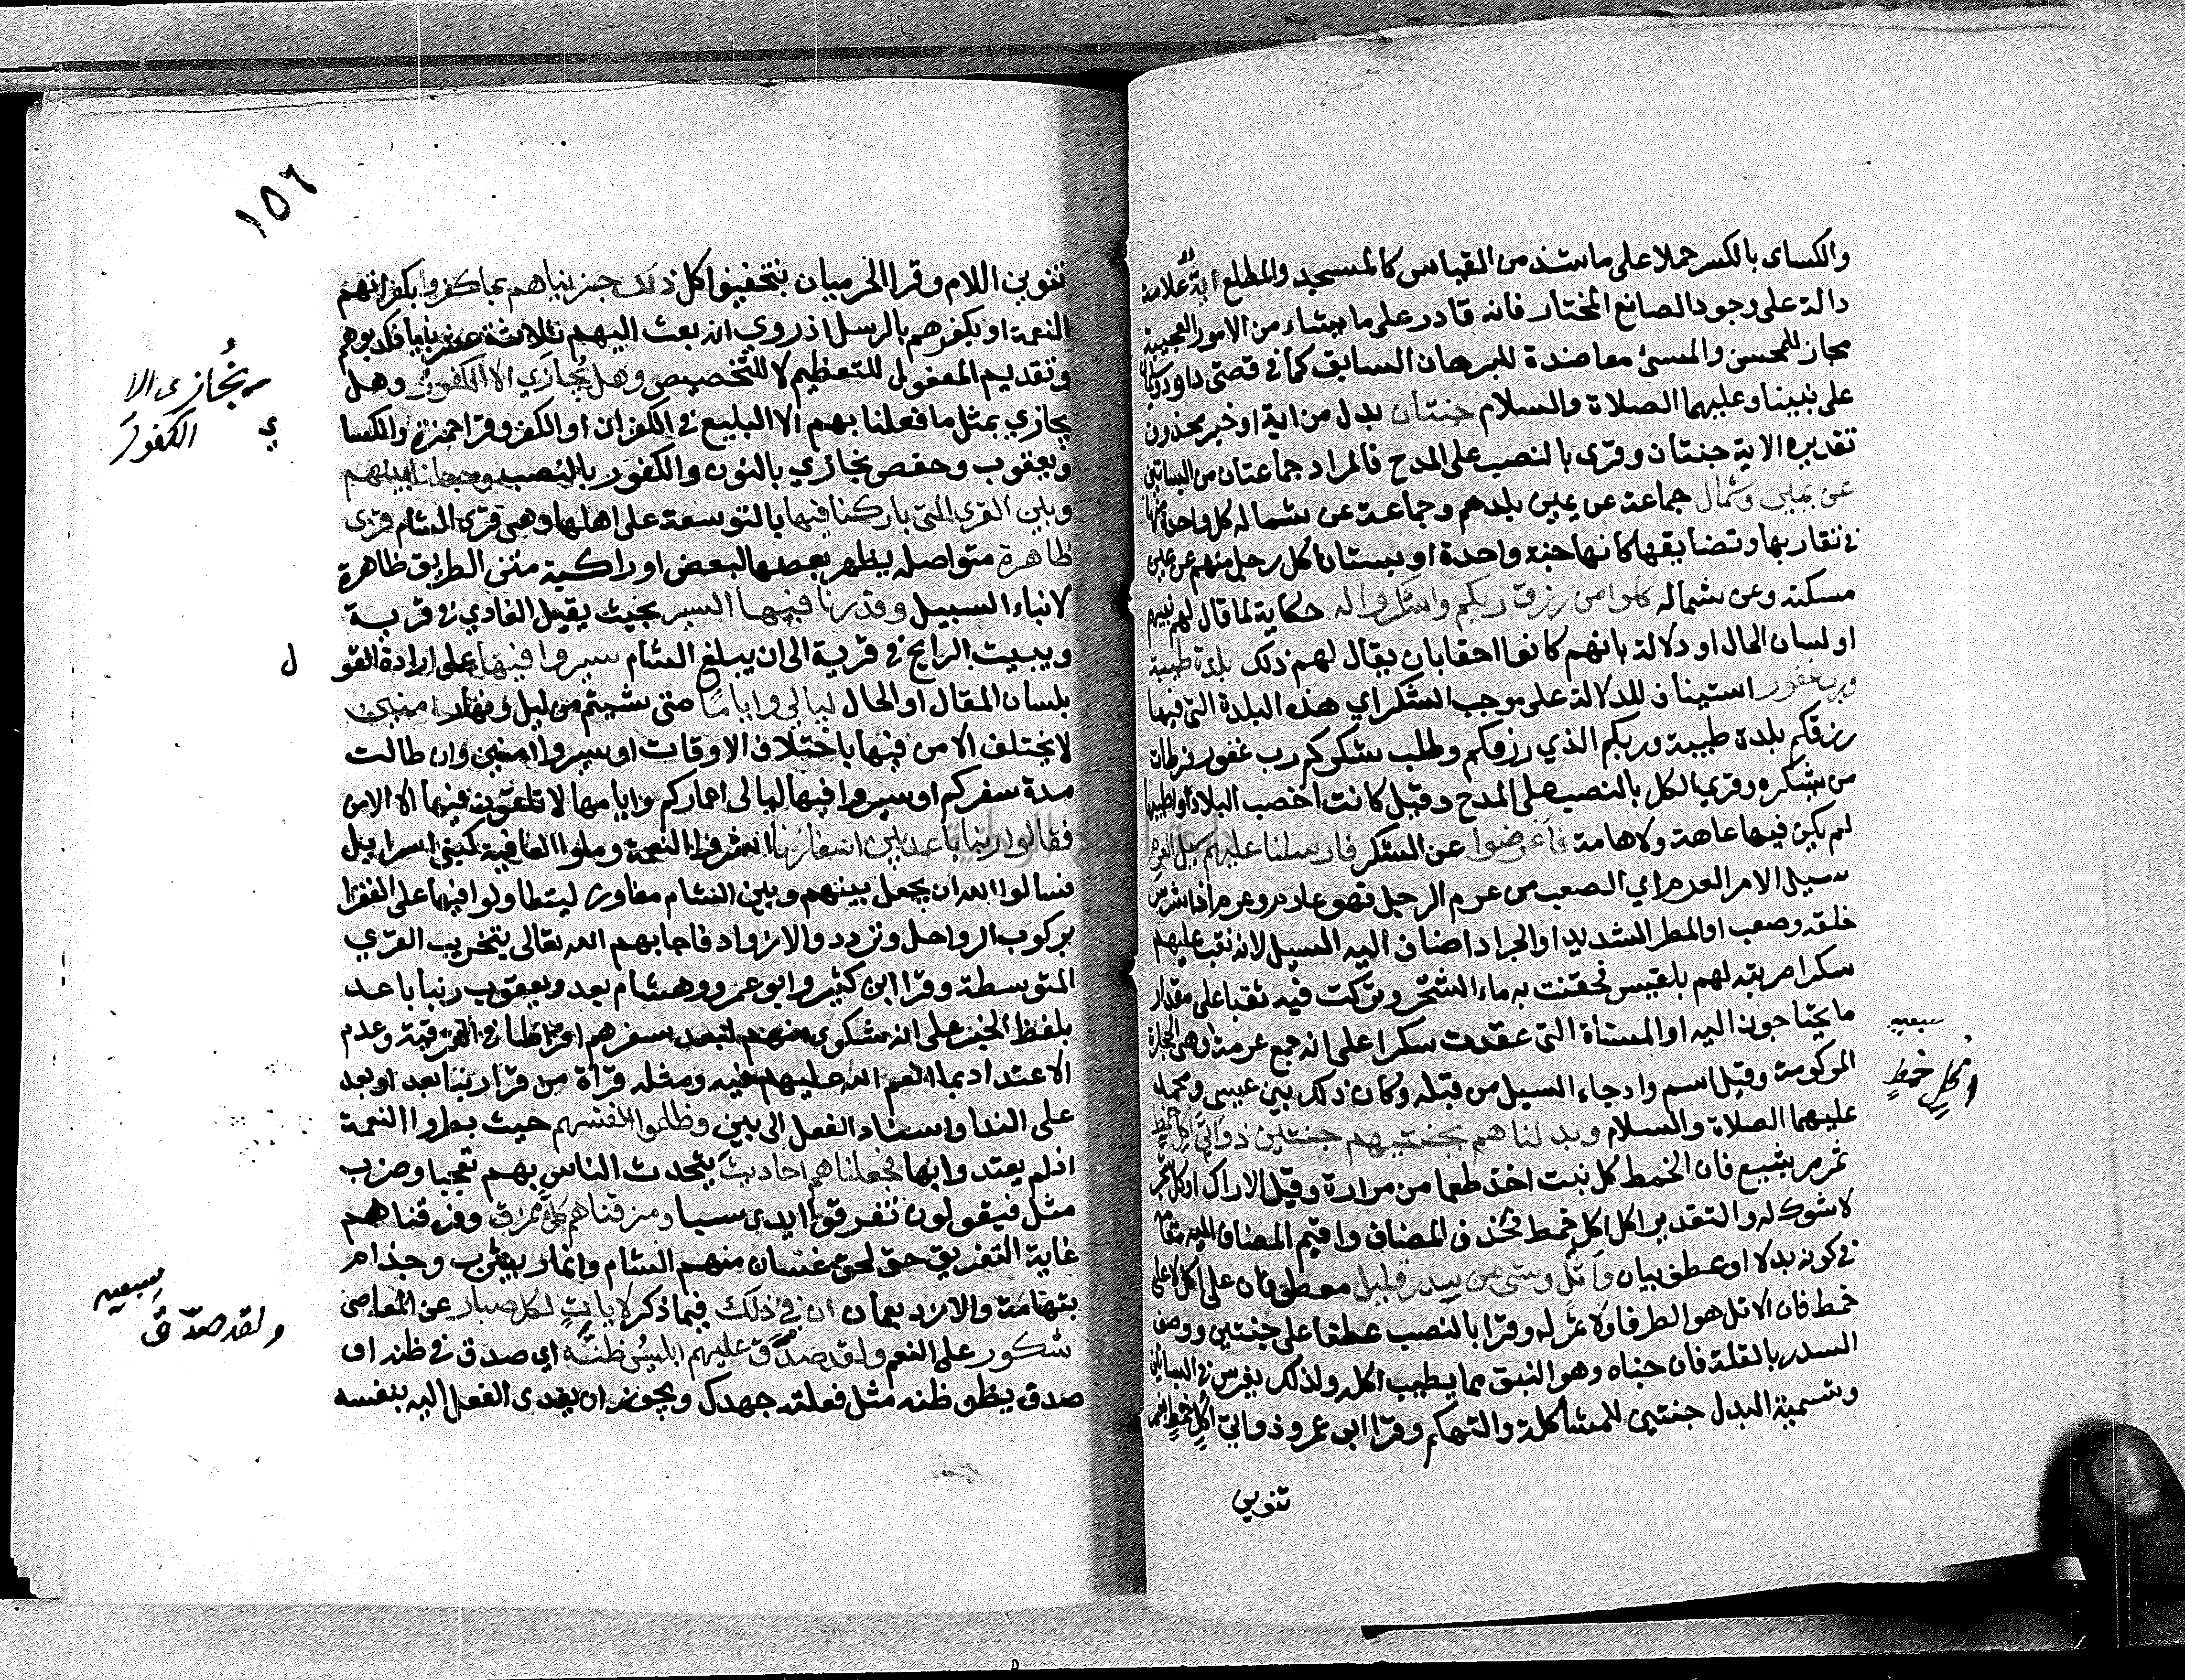 والكساى بالكسر حملا على ما شذ من القياس كالمسجد والمطلع اية علامة
دالة على وجود الصانع المختار فانه قادر على ما يشاء من الامور العجيبة
مجاز للمحسن والمسئ معاضدة للبرهان السابق كما فى قصتى داود وسليمان
على نبينا وعليهما الصلاة والسلام جنتان بدل من اية او خبر محذوف
تقديره الاية جنتان وقرى بالنصب على المدح فالمراد جماعتان من البساتين
عن يمين وشمال جماعة عن يمين بلدهم وجماعة عن شماله كل واحدة منها
فى تقاربها وتضايقها كانها جنة واحدة او بستانا كل رجل منهم عن يمين
مسكنه وعن شماله كلوا من رزق ربكم واشكروا له حكاية لما قال لهم نبيهم
او لسان الحال او دلالة بانهم كانوا احقا بان يقال لهم ذلك بلدة طيبة
ورب غفور استيناف للدلالة على موجب الشكر اي هذه البلدة التى فيها
رزقكم بلدة طيبة وربكم الذي رزقكم وطلب شكركم رب غفور فرطات
من يشكره وقري الكل بالنصب على المدح وقيل كانت اخصب البلاد واطيبها
لم يكن فيها عاهة ولا هامة فاعرضوا عن الشكر فارسلنا عليهم سيل العرم
سيل الامر العرم اي الصعب من عرم الرجل فهو عارم وعرم اذا شرس
خلقه وصعب او المطر الشديد او الجراد اضاف اليه السيل لانه نقب عليهم
سكرا ضربته لهم بلقيس فحقنت به ماء الشحر وتركت فيه ثقبا على مقدار
ما يحتاجون اليه او المسناة التى عقدت سكرا على انه جمع عرمة وهى الحجارة
المركومة وقيل اسم واد جاء السيل من قبله وكان ذلك بين عيسى ومحمد
عليهما الصلاة والسلام وبدلناهم بجنتيهم جنتين ذواتي اكل خمط
ثمر مر بشيع فان الخمط كل نبت اخذ طعما من مرارة وقيل الاراك او كل شجر
لا شوك له والتقدير اكل اكل خمط فحذف المضاف واقيم المضاف اليه مقامه
فى كونه بدلا او عطف بيان واثل وشى من سدر قليل معطوفان على اكل لا على
خمط فان الاثل هو الطرفا ولا ثمر له وقرا بالنصب عطفا على جنتين ووصف
السدر بالقلة فان جناه وهو النبق مما يطيب اكله ولذلك يغرس فى البساتين
وتسمية البدل جنتين للمشاكلة والتهكم وقرا ابى عمرو ذواتي اكل خمط بغير
تنوين
سبعيه
اكل خمط
١٥٦
تنوين اللام وقرا الحرميان بتخفيف اكل ذلك جزيناهم بما كفروا بكفرانهم
النعمة او بكفرهم بالرسل اذ روي انه بعث اليهم ثلاثة عشر نبيا فكذبوهم
وتقديم المفعول للتعظيم لا للتخصيص وهل يجازي الا الكفور وهل
يجازي بمثل ما فعلنا بهم الا البليغ فى الكفران او الكفر وقرا حمزة والكسا ي
ويعقوب وحفص نجازي بالنون والكفور بالنصب وجعلنا بينهم
وبين القرى التى باركنا فيها بالتوسعة على اهلها وهى قرى الشام قرى
ظاهرة متواصلة يظهر بعضها لبعض او راكبة متن الطريق ظاهرة
لابناء السبيل وقدرنا فيها السير بحيث يقيل الغادي فى قرية
ويبيت الرايح فى قرية الى ان يبلغ الشام سيروا فيها على ارادة القو ل
بلسان المقال او الحال ليالي واياما متى شيتم من ليل ونهار امنين
لا يختلف الامن فيها باختلاف الاوقات او سيروا امنين وان طالت
مدة سفركم او سيروا فيها ليالى اعماركم وايامها لا تلقون فيها الا الامن
فقالوا ربنا باعد بين اسفارنا اشروا النعمة وملوا العافية كبنى اسرايل
فسالوا الله ان يجعل بينهم وبين الشام مفاوز ليتطاولوا فيها على الفقرا
بركوب الرواحل وتزود والازواد فاجابهم الله تعالى بتخريب القري
المتوسطة وقرا ابن كثير وابو عمرو وهشام بعد ويعقوب ربنا باعد
بلفظ الخبر على انه شكوي منهم لبعد سفرهم افراطا فى الترفية وعدم
الاعتداد بما انعم الله عليهم فيه ومثله قراة من قرا ربنا بعد او بعد
على الندا واسناد الفعل الى بين وظلموا انفسهم حيث بطروا النعمة
افلم يعتدوا بها فجعلناهم احاديث يتحدث الناس بهم تعجبا وضرب
مثل فيقولون تفرقوا ايدى سبا ومزقناهم كل ممزق وفرقناهم
غاية التفريق حتى لحق غسان منهم الشام وانمار بيثرب وجذام
بتهامة والازد بعمان ان فى ذلك فيما ذكر لايات لكل صبار عن المعاصى
شكور على النعم ولقد صدق عليهم ابليس ظنه اي صدق فى ظنه او
صدق يظن ظنه مثل فعلته جهدك ويجوز ان يعدى الفعل اليه بنفسه
نجازى الا
الكفور
سبعيه
ولقد صدق